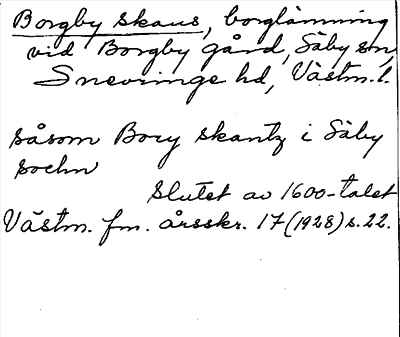 Borgby skans, borglämning
vid Borgby gård, Säby sn,
Snevringe hd, Västm. l.
såsom Bory skantz i Säby
sochn
Slutet av 1600-talet
Västm. fm. årsskr. 17 (1928) s. 22.